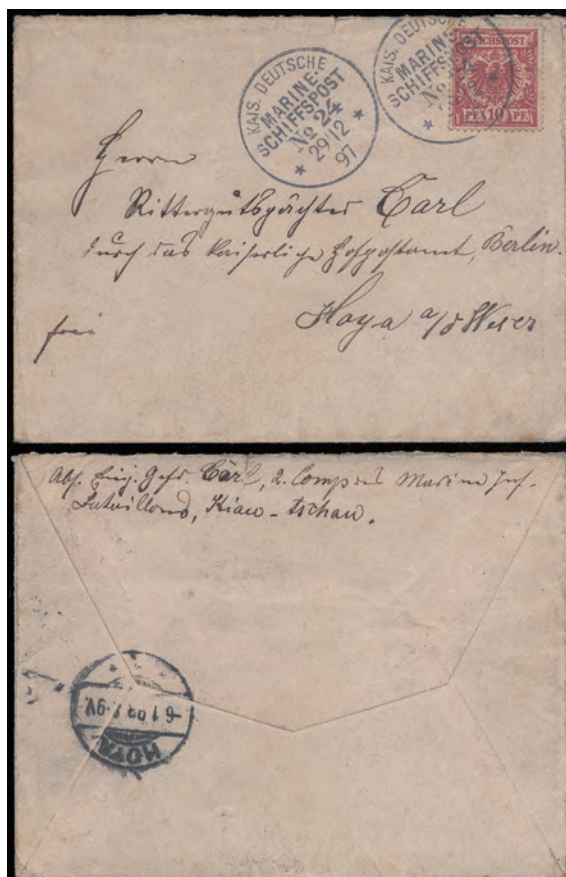 KAIS. DEUTSCHE
MARINE-
SCHIFFSPOST
No 24
29/12
97
KAIS. DEUTSCHE
MARINE-
SCHIFFSPOST
No
REICHSPOST
PF. 10 PF.
Herrn
Rittergutspächter Carl
durch das Kaiserliche Hofpostamt, Berlin.
Hoya a/d Weser
frei
Abs. Einj. Gefr. Carl, 2. Comp. des Marine Inf.
Bataillons, Kiau-tschau.
HOYA
-6.1.98.7-9V.